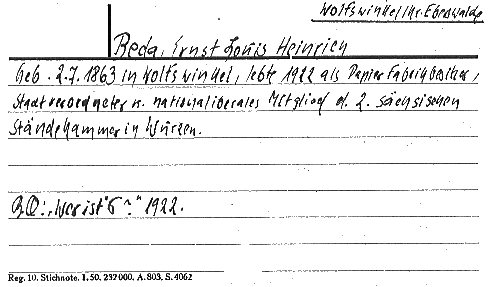 Wolfswinkel Kr. Eberswalde
Beda, Ernst Louis Heinrich
Geb. 2.7. 1863 in Wolfswinkel, lebte 1922 als Papierfabrikbesitzer,
Stadtverordneter u. nationalliberales Mitglied d. 2. sächsischen
Ständekammer in Wurzen.
BQ: „Wer ist's?" 1922.
Reg. 10. Stichnote. 1. 50. 232000. A. 803. S. 4062